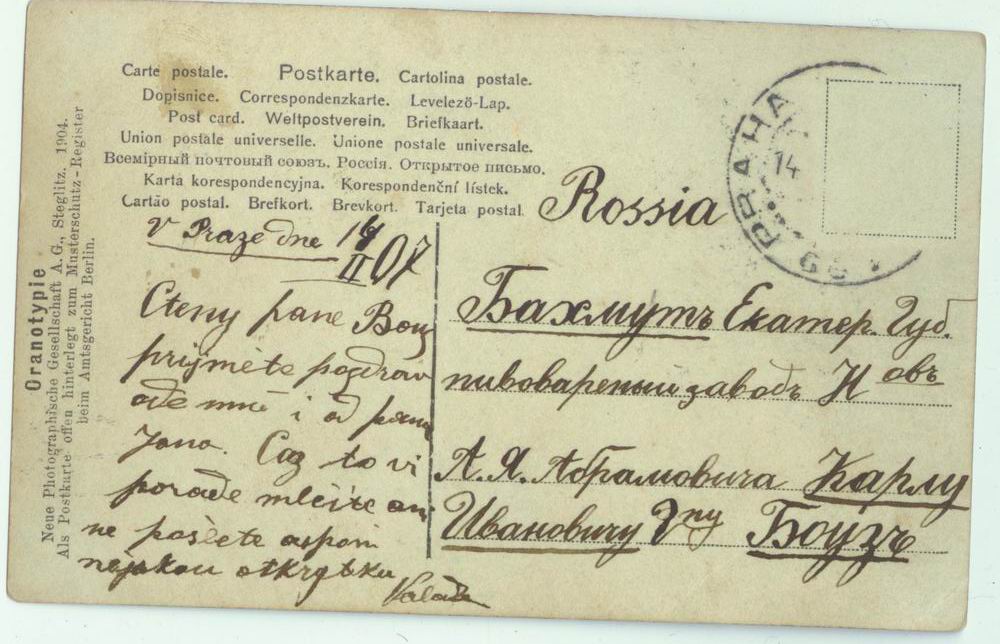 Carte postale. Postkarte. Cartolina postale.
Dopisnice. Correspondenzkarte. Levelező-Lap.
Post card. Weltpostverein. Briefkaart.
Union postale universelle. Unione postale universale.
Всемірный почтовый союзъ. Россія. Открытое письмо.
Karta korespondencyjna. Korespondenční lístek.
Cartão postal. Brefkort. Brevkort. Tarjeta postal
Oranotypie
Neue Photographische Gesellschaft A.G., Steglitz. 1904.
Als Postkarte offen hinterlegt zum Musterschutz-Register
beim Amtsgericht Berlin.
PRAHA
14
V Praze dne 14/II 07
Cteny pane Bouz
prijmète pozdrav
ode mně i od pana
Jana. Coz to vi
porade mlčite
ne pošlete aspon
nejakou otkrytku
Rossia
Бахмутъ Екатер. Губ.
пивовареный заводъ Н овъ
А. Я. Абрамовича Карлу
Ивановичу Г ну Боузъ